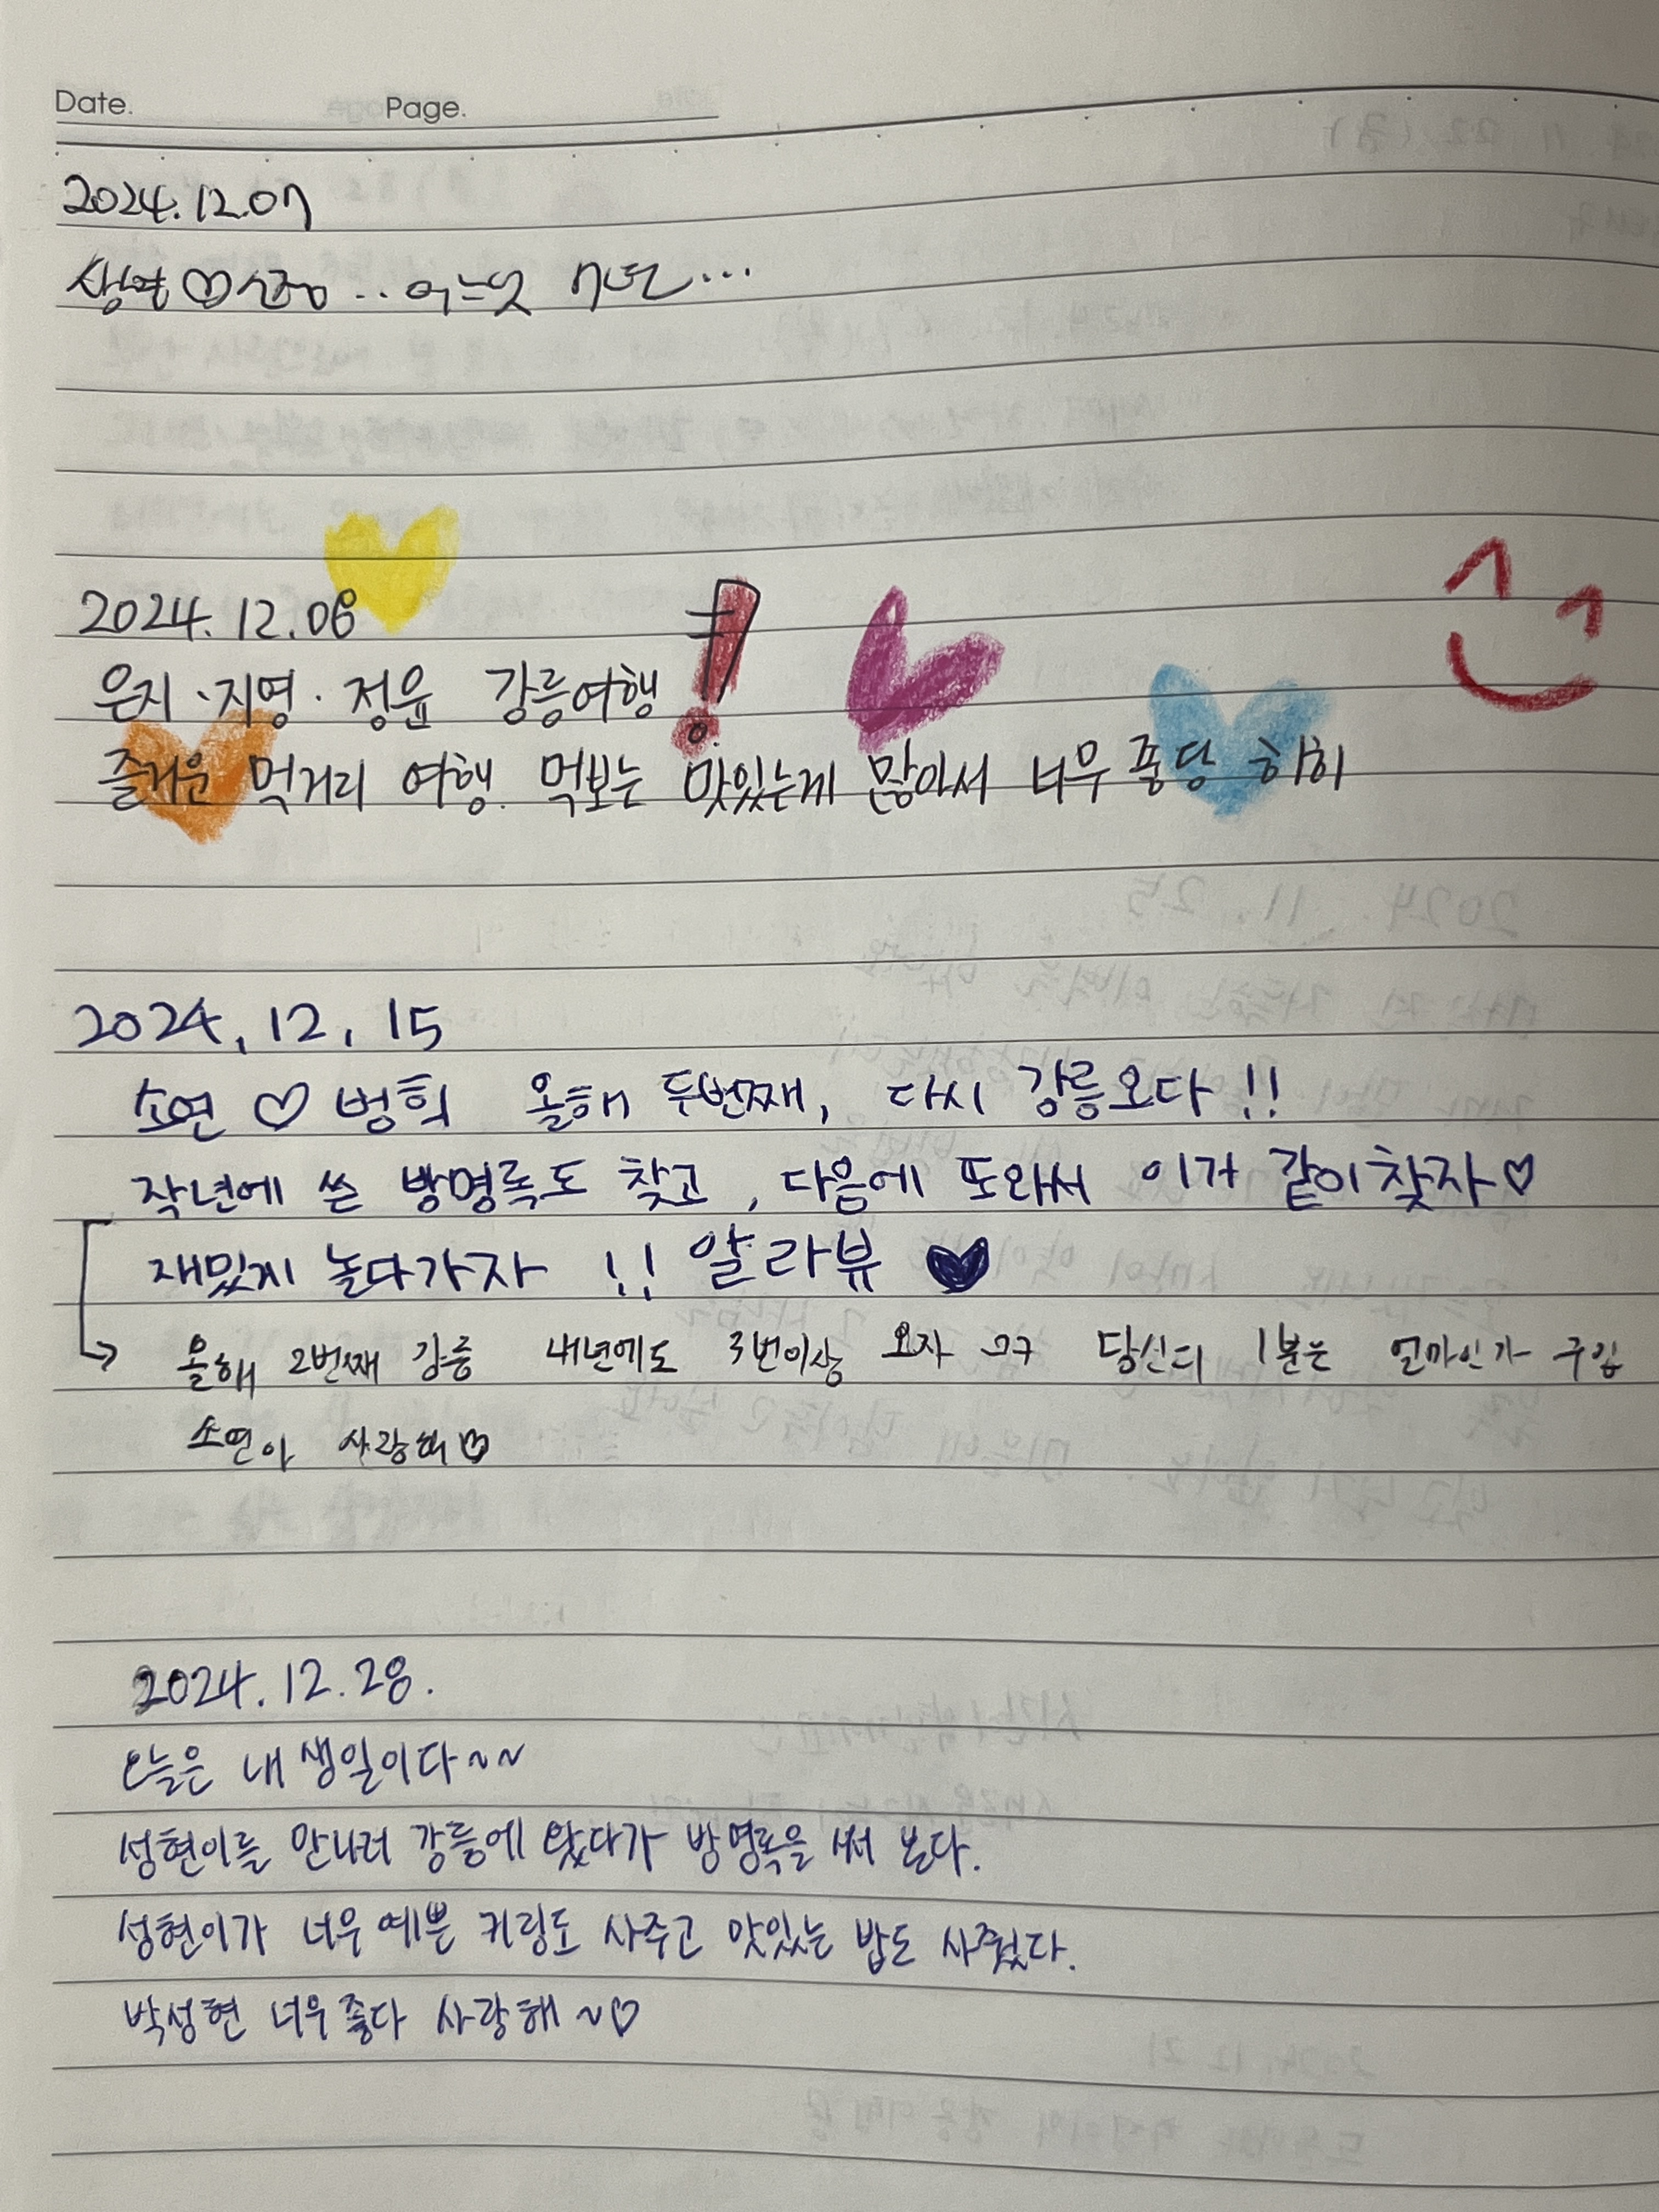 Date. Page.
2024.12.07
상현♡수정.. 어느덧 7년...
2024.12.08
은지·지영·정윤 강릉여행!
즐거운 먹거리 여행. 먹보는 맛있는게 많아서 너무 퐁당 히히
2024, 12, 15
소연 ♡ 범희 올해 두번째, 다시 강릉오다!!
작년에 쓴 방명록도 찾고, 다음에 또와서 이거 같이찾자♡
재밌게 놀다가자 !! 알라뷰 ♥
올해 2번째 강릉 내년에도 3번이상 오자 ㅋㅋ 당신의 1분은 얼마인가 구입
소연아 사랑해♡
2024.12.28.
오늘은 내 생일이다~~
성현이를 만나러 강릉에 왔다가 방명록을 써 본다.
성현이가 너무 예쁜 키링도 사주고 맛있는 밥도 사줬다.
박성현 너무좋다 사랑해~♡